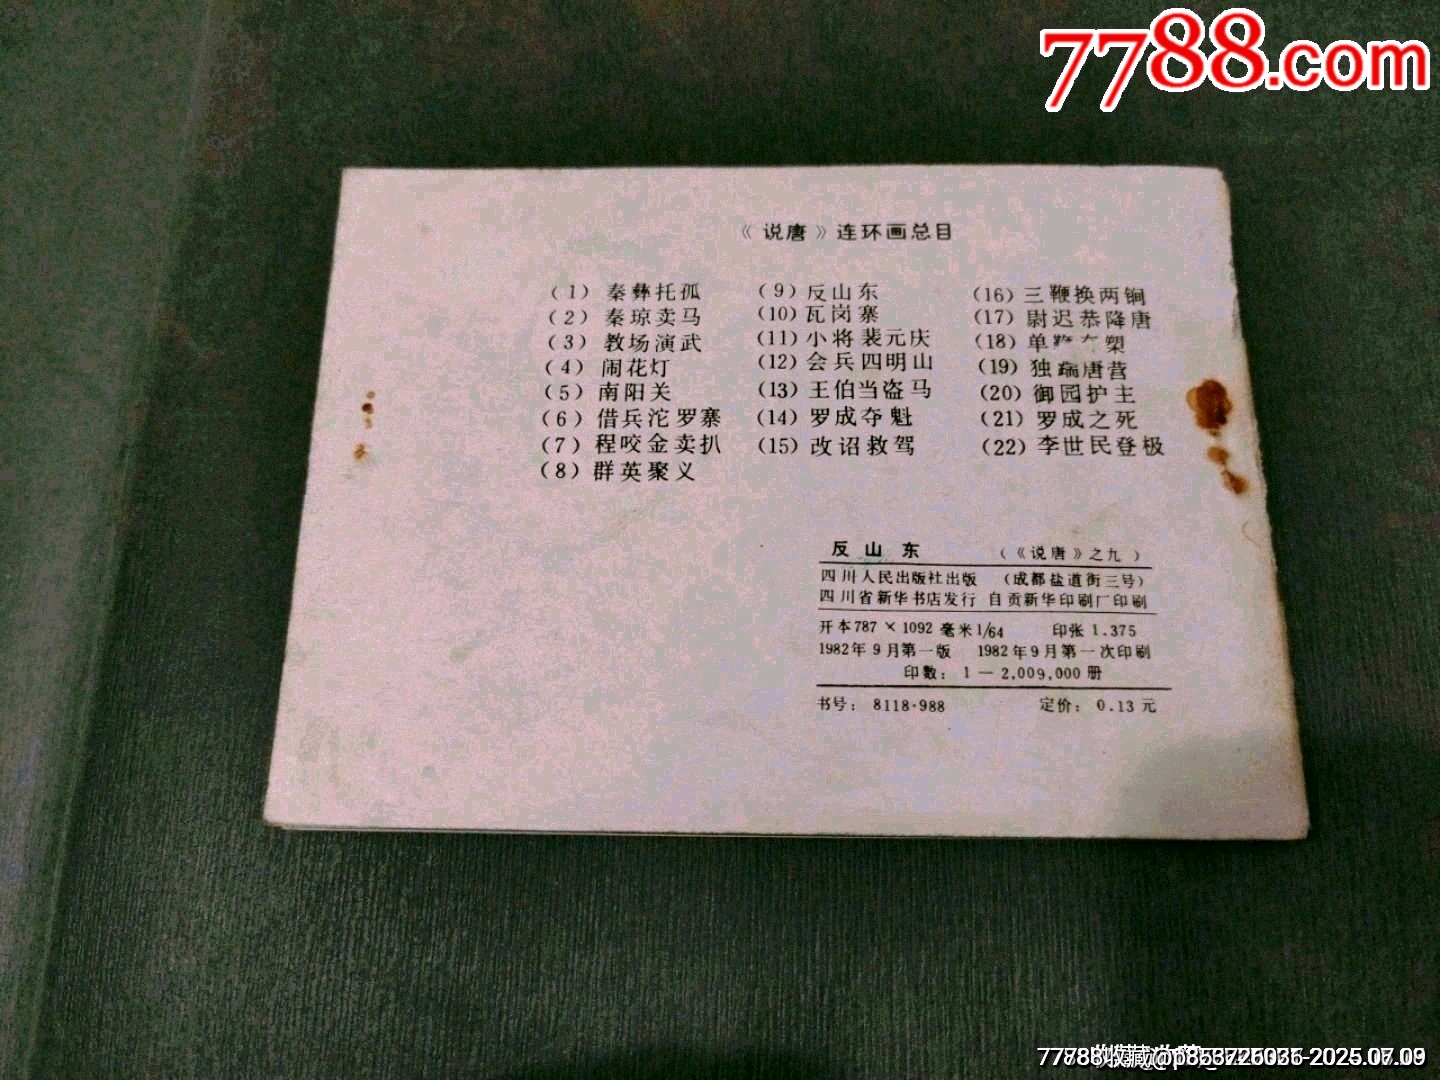 7788.com
《说唐》连环画总目
（1）秦彝托孤
（2）秦琼卖马
（3）教场演武
（4）闹花灯
（5）南阳关
（6）借兵沱罗寨
（7）程咬金卖扒
（8）群英聚义
（9）反山东
（10）瓦岗寨
（11）小将裴元庆
（12）会兵四明山
（13）王伯当盗马
（14）罗成夺魁
（15）改诏救驾
（16）三鞭换两锏
（17）尉迟恭降唐
（18）单
（19）独踹唐营
（20）御园护主
（21）罗成之死
（22）李世民登极
反山东 （《说唐》之九）
四川人民出版社出版 （成都盐道街三号）
四川省新华书店发行 自贡新华印刷厂印刷
开本787×1092毫米1/64 印张1.375
1982年9月第一版 1982年9月第一次印刷
印数：1—2,009,000册
书号：8118·988 定价：0.13元